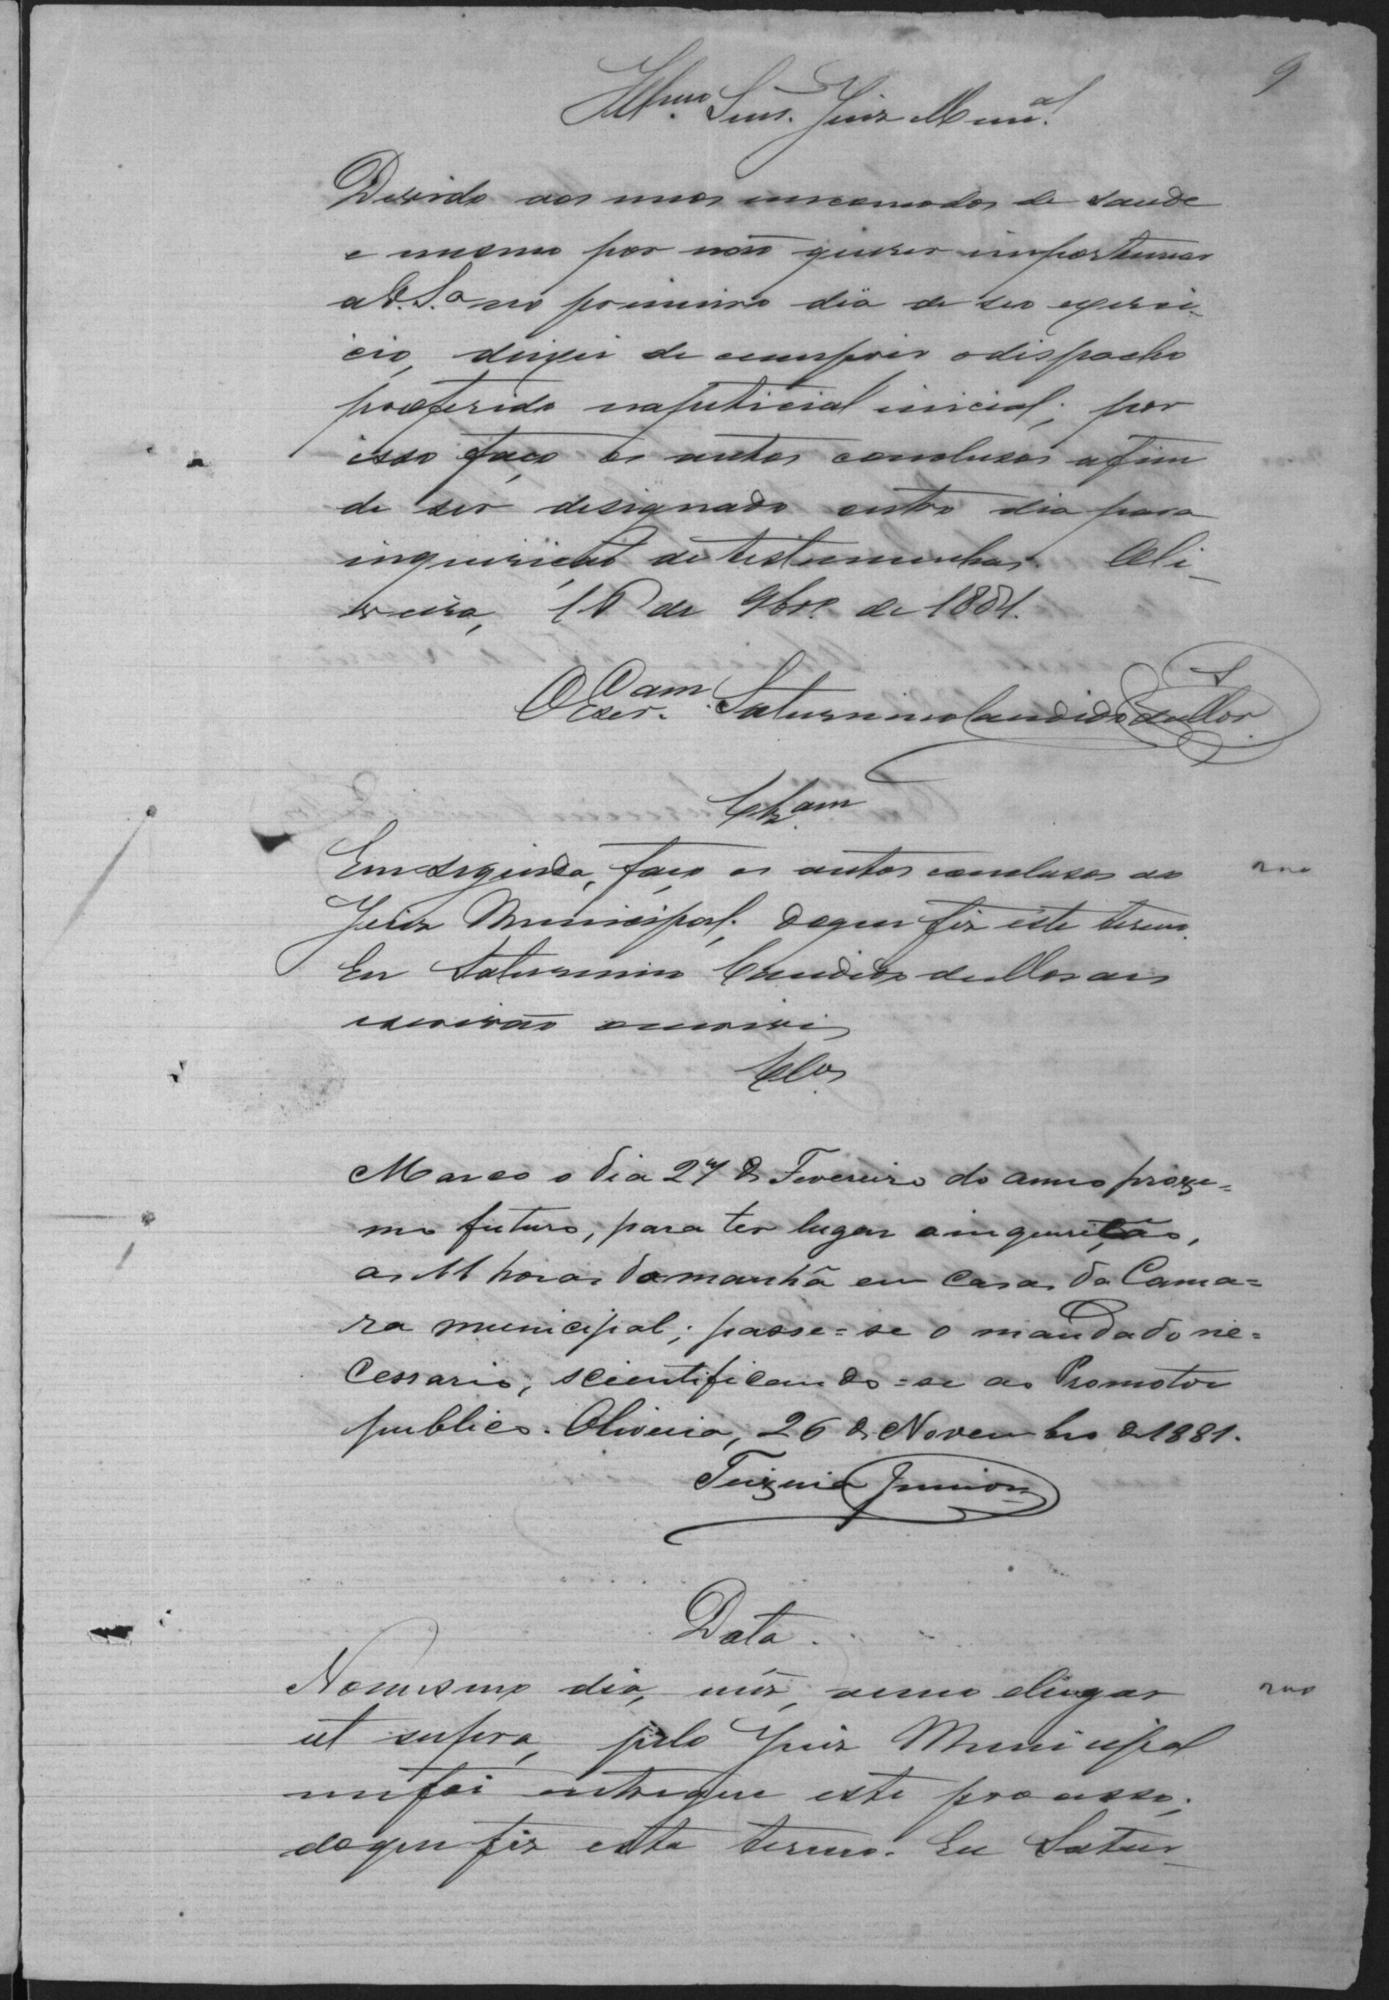 9
Illmo. Snr. Juiz Munal.
Devido aos meus incomodos de saude
e mesmo por não querer importunar
a V. Sa no primeiro dia de seo exerci-
cio, deixei de cumprir o dispacho
proferido na peticial inicial; por
isso faço os autos conclusos afim
de ser designado outro dia para
inquirição de testemunhas. Oli-
veira, de 9bro. de 1881.
O Escr. Saturnino Candido de Mor.
Clzam
Em seguida, faço os autos conclusos ao
Juiz Municipal; do que fiz este termo.
Eu Saturnino Candido de Moraes
escrivão o escrivi
Clos
Marco o dia 27 de Fevereiro do anno proxi=
mo futuro, para ter lugar a inquirição,
as 11 horas da manhã em casa da Cama=
ra municipal; passe=se o mandado ne=
cessario, scientificando=se ao Promotor
publico. Oliveira, 26 de Novembro de 1881.
Teixeira Junior
Data.
No mesmo dia, mez, anno e lugar
ut supra, pelo Juiz Municipal
me foi entregue este processo;
do que fiz este termo. Eu Satur-